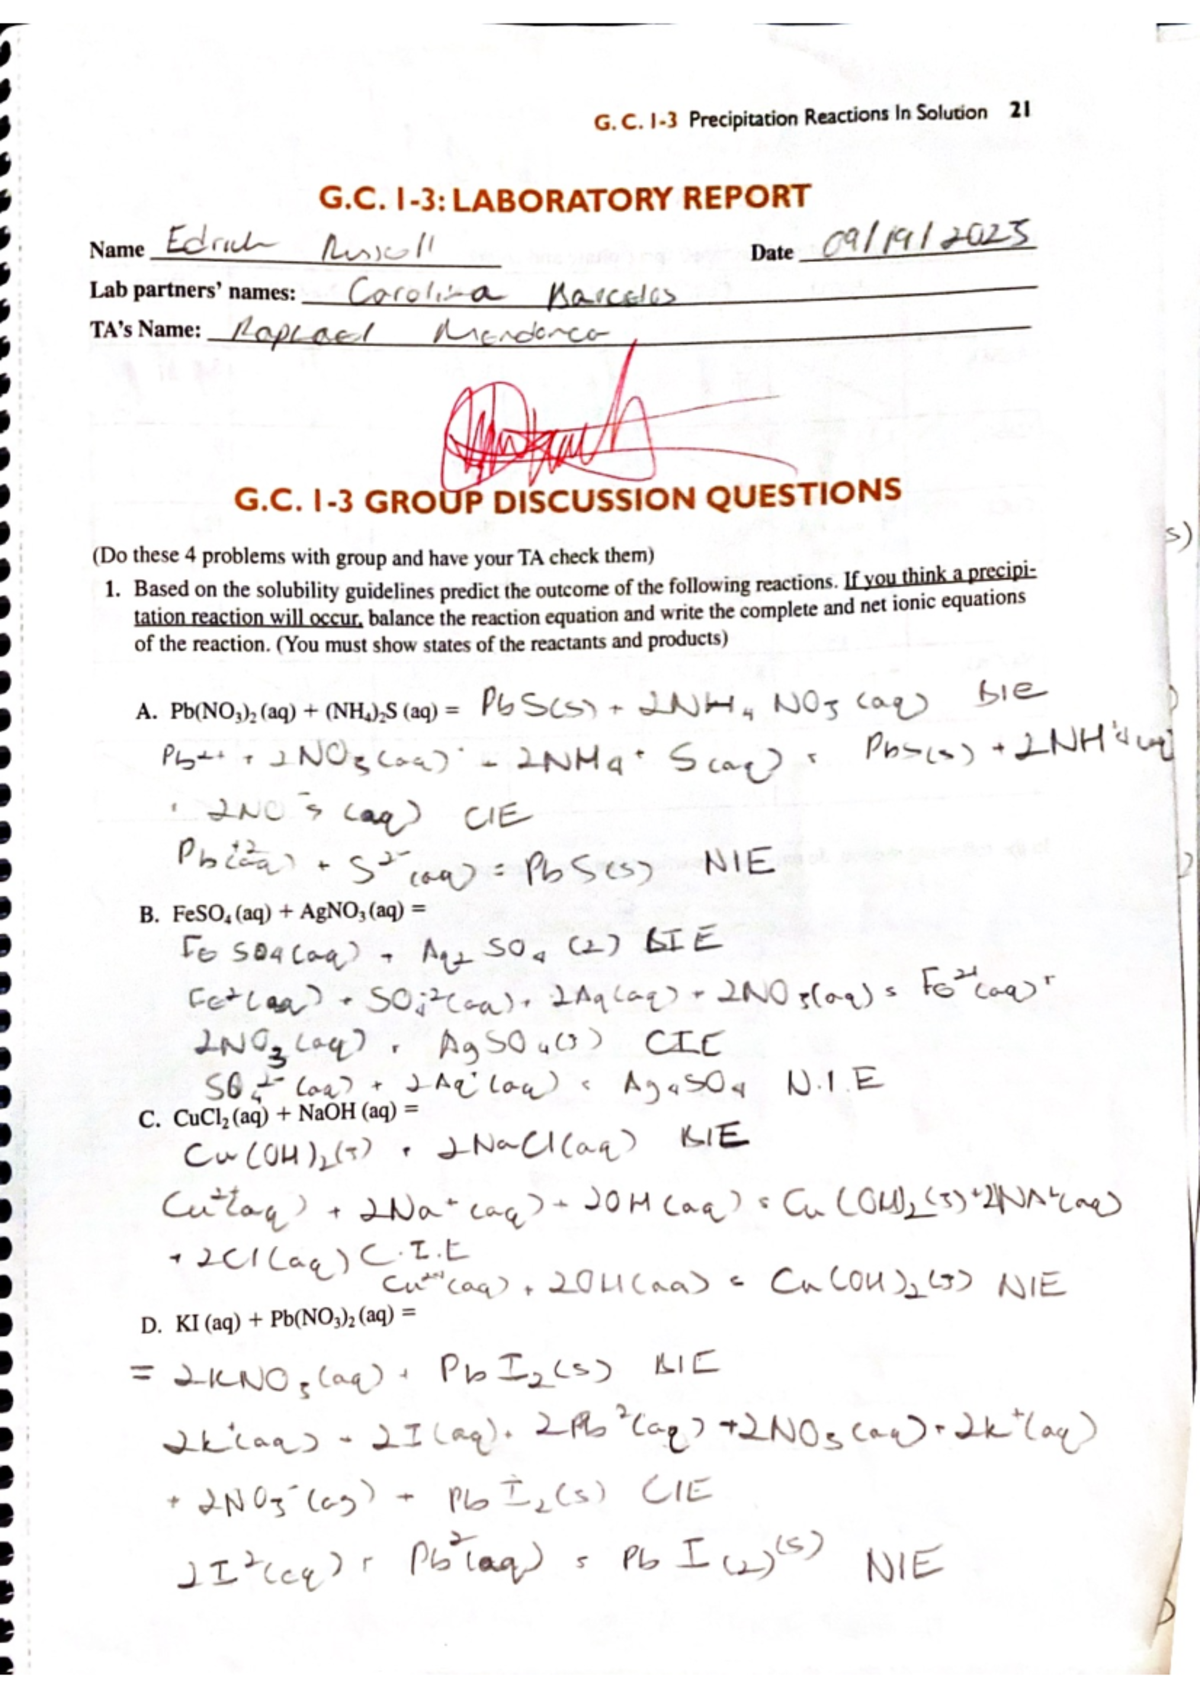 G. C. 1-3 Precipitation Reactions In Solution 21
G.C. 1-3: LABORATORY REPORT
Name Edrich Russell Date 09/19/2023
Lab partners' names: Carolina Barcelos
TA's Name: Raphael Mendonca
G.C. 1-3 GROUP DISCUSSION QUESTIONS
(Do these 4 problems with group and have your TA check them)
1. Based on the solubility guidelines predict the outcome of the following reactions. If you think a precipi-
tation reaction will occur, balance the reaction equation and write the complete and net ionic equations
of the reaction. (You must show states of the reactants and products)
A. Pb(NO₃)₂ (aq) + (NH₄)₂S (aq) = PbS(s) + 2NH₄ NO₃ (aq) BIE
Pb²⁺ + 2NO₃(aq)⁻ + 2NH₄⁺ S(aq) = PbS(s) + 2NH⁺4(aq)
+ 2NO⁻3 (aq) CIE
Pb⁺²(aq) + S²⁻(aq) = PbS(s) NIE
B. FeSO₄ (aq) + AgNO₃ (aq) =
Fe SO4(aq) + Ag₂ SO₄ (2) BIE
Fe²⁺(aq) + SO₄⁻²(aq) + 2Ag(aq) + 2NO₃(aq) = Fe²⁺(aq) +
2NO₃(aq) + AgSO₄(s) CIE
SO₄²⁻(aq) + 2Ag⁺(aq) = Ag₄SO₄ N.I.E
C. CuCl₂ (aq) + NaOH (aq) =
Cu(OH)₂(s) + 2NaCl(aq) BIE
Cu²⁺(aq) + 2Na⁺(aq) + 2OH(aq) = Cu(OH)₂(s) + 2NA⁺(aq)
+ 2Cl(aq) C.I.E
Cu²⁺(aq) + 2OH(aq) = Cu(OH)₂(s) NIE
D. KI (aq) + Pb(NO₃)₂ (aq) =
= 2KNO₃(aq) + PbI₂(s) BIE
2K⁺(aq) + 2I(aq) + 2Pb²(aq) + 2NO₃(aq) = 2K⁺(aq)
+ 2NO₃⁻(aq) + PbI₂(s) CIE
2I²(aq) + Pb²(aq) = PbI(2)(s) NIE